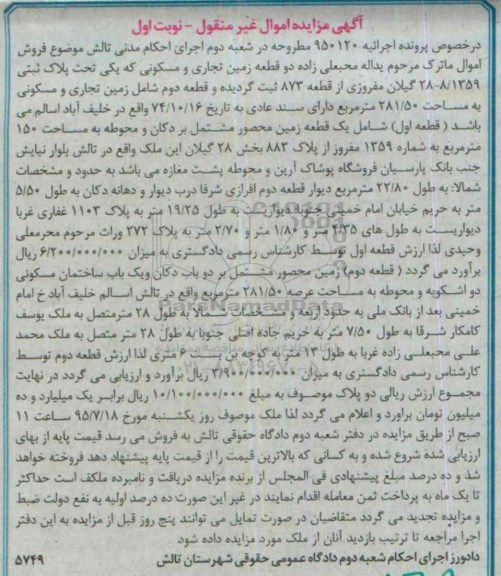 آگهی مزایده اموال غیر منقول - نوبت اول
درخصوص پرونده اجرائیه ۹۵۰۱۲۰ مطروحه در شعبه دوم اجرای احکام مدنی تالش موضوع فروش
اموال ماترک مرحوم یداله محبعلی زاده دو قطعه زمین تجاری و مسکونی که یکی تحت پلاک ثبتی
۲۸-۸/۱۳۵۹ گیلان مفروزی از قطعه ۸۷۳ ثبت گردیده و قطعه دوم شامل زمین تجاری و مسکونی
به مساحت ۲۸۱/۵۰ مترمربع دارای سند عادی به تاریخ ۷۴/۱۰/۱۶ واقع در خلیف آباد اسالم می
باشد ( قطعه اول) شامل یک قطعه زمین محصور مشتمل بر دکان و محوطه به مساحت ۱۵۰
مترمربع به شماره ۱۳۵۹ مفروز از پلاک ۸۸۳ بخش ۲۸ گیلان این ملک واقع در تالش بلوار نیایش
جنب بانک پارسیان فروشگاه پوشاک آرین و محوطه پشت مغازه می باشد به حدود و مشخصات
شمالا: به طول ۲۲/۸۰ مترمربع دیوار قطعه دوم افرازی شرقا درب دیوار و دهانه دکان به طول ۵/۵۰
متر به حریم خیابان امام خمینی جنوبا دیواریست به طول ۱۹/۲۵ متر به پلاک ۱۱۰۳ غفاری غربا
دیواریست به طول های ۴/۳۵ متر و ۱/۸۰ متر و ۲/۷۰ متر به پلاک ۲۷۲ وراث مرحوم محرمعلی
وحیدی لذا ارزش قطعه اول توسط کارشناس رسمی دادگستری به میزان ۶/۲۰۰/۰۰۰/۰۰۰ ریال
برآورد می گردد ( قطعه دوم) زمین محصور مشتمل بر دو باب دکان ویک باب ساختمان مسکونی
دو اشکوبه و محوطه به مساحت عرصه ۲۸۱/۵۰ مترمربع واقع در تالش اسالم خلیف آباد خ امام
خمینی بعد از بانک ملی به حدود اربعه و مشخصات شمالا به طول ۲۸ مترمتصل به ملک یوسف
کامکار شرقا به طول ۷/۵۰ متر به حریم جاده اصلی جنوبا به طول ۲۸ متر متصل به ملک محمد
علی محبعلی زاده غربا به طول ۱۳ متر به کوچه بن بست ۶ متری لذا ارزش قطعه دوم توسط
کارشناس رسمی دادگستری به میزان ۳/۹۰۰/۰۰۰/۰۰۰ ریال برآورد و ارزیابی می گردد در نهایت
مجموع ارزش ریالی دو پلاک موصوف به مبلغ ۱۰/۱۰۰/۰۰۰/۰۰۰ ریال برابر یک میلیارد و ده
میلیون تومان براورد و اعلام می گردد لذا ملک موصوف روز یکشنبه مورخ ۹۵/۷/۱۸ ساعت ۱۱
صبح از طریق مزایده در دفتر شعبه دوم دادگاه حقوقی تالش به فروش می رسد قیمت پایه از بهای
ارزیابی شده شروع شده و به کسانی که بالاترین قیمت را از قیمت پایه پیشنهاد دهد فروخته خواهد
شد و ده درصد مبلغ پیشنهادی فی المجلس از برنده مزایده دریافت و نامبرده مکلف است حداکثر
تا یک ماه به پرداخت ثمن معامله اقدام نمایند در غیر این صورت ده درصد اولیه به نفع دولت ضبط
و مزایده تجدید می گردد متقاضیان در صورت تمایل می توانند پنج روز قبل از مزایده به این دفتر
اجرا مراجعه تا ترتیب بازدید آنان از ملک مورد مزایده داده شود
دادورز اجرای احکام شعبه دوم دادگاه عمومی حقوقی شهرستان تالش ۵۷۴۹
ParsNamadData